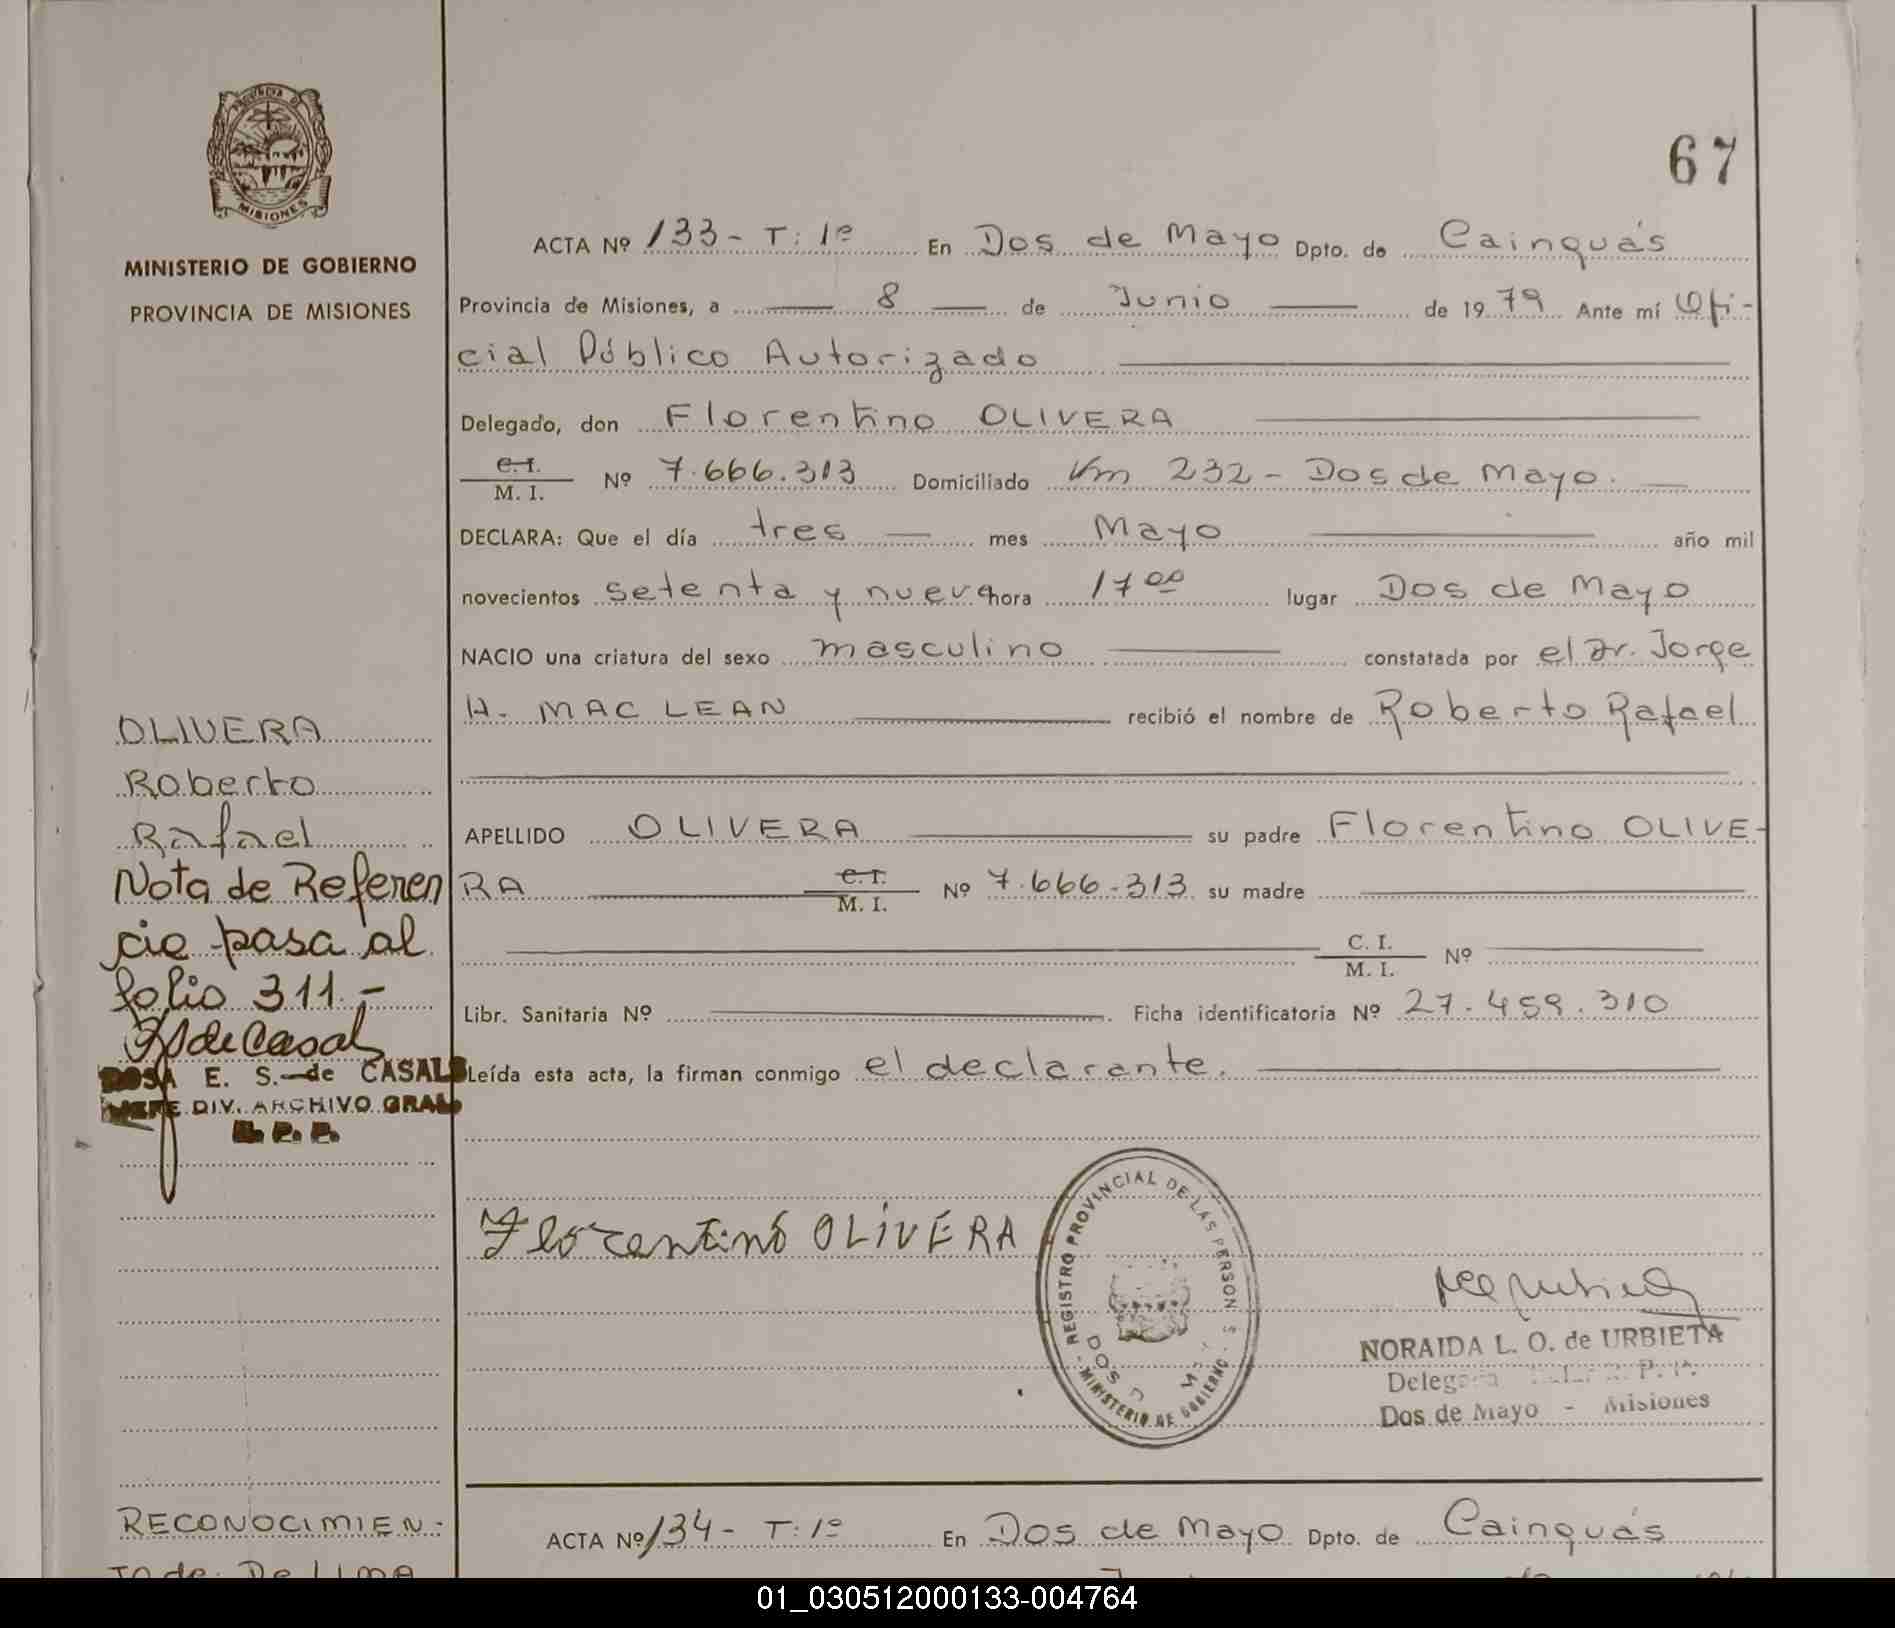 PROVINCIA DE
MISIONES
MINISTERIO DE GOBIERNO
PROVINCIA DE MISIONES
67
ACTA Nº 133 - T: 1º En Dos de Mayo Dpto. de Cainguás
Provincia de Misiones, a 8 de Junio de 19 79 Ante mí Ofi-
cial Público Autorizado
Delegado, don Florentino OLIVERA
C. I.
M. I. Nº 7.666.313 Domiciliado Km 232 - Dos de Mayo.
DECLARA: Que el día tres mes Mayo año mil
novecientos setenta y nueve hora 17 00 lugar Dos de Mayo
NACIO una criatura del sexo masculino constatada por el Dr. Jorge
H. MAC LEAN recibió el nombre de Roberto Rafael
APELLIDO OLIVERA su padre Florentino OLIVE-
RA C. I.
M. I. Nº 7.666.313 su madre
C. I.
M. I. Nº
Libr. Sanitaria Nº Ficha identificatoria Nº 27.459.310
Leída esta acta, la firman conmigo el declarante.
OLIVERA
Roberto
Rafael
Nota de Referen
cia pasa al
folio 311.-
RS de Casal
ROSA E. S. de CASALS
JEFE DIV. ARCHIVO GRAL
R. P. P.
Florentino OLIVERA
REGISTRO PROVINCIAL DE LAS PERSON S
MINISTERIO DE GOBIERNO
DOS D M Y
NORAIDA L. O. de URBIETA
Delegada R. P. P.
Dos de Mayo - Misiones
RECONOCIMIEN-
TO de: De LIMA
ACTA Nº 134 - T: 1º En Dos de Mayo Dpto. de Cainguás
01_030512000133-004764